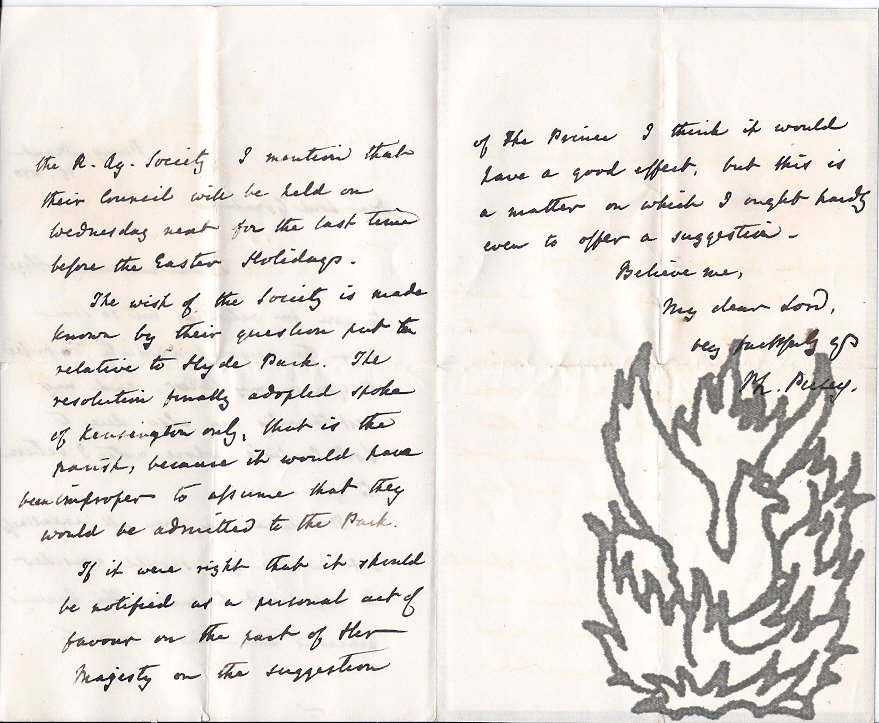 the R. Ag. Society I mention that
their Council will be held on
Wednesday next for the last time
before the Easter Holidays.
The wish of the Society is made
known by their question put to
relative to Hyde Park. The
resolution finally adopted spoke
of Kensington only, that is the
parish, because it would have
been improper to assume that they
would be admitted to the Park.
If it were right that it should
be notified as a personal act of
favour on the part of Her
Majesty on the suggestion
of the Prince I think it would
have a good effect, but this is
a matter on which I ought hardly
even to offer a suggestion.
Believe me,
My dear Lord,
very faithfully yrs
Ph. Pusey.